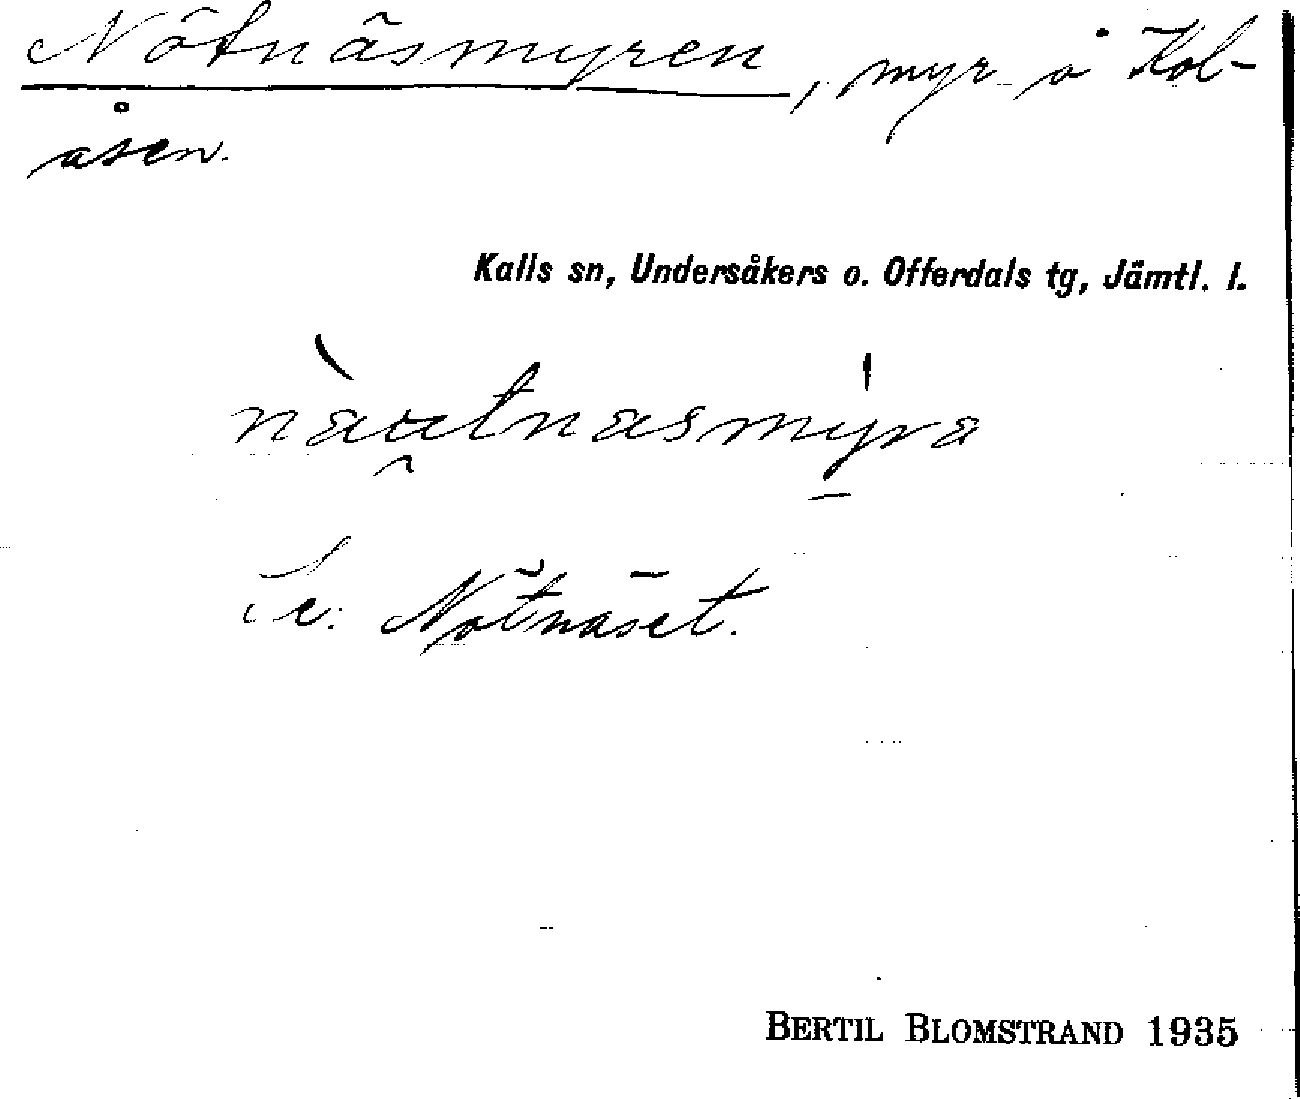 Nötnäsmyren, myr å Kol-
åsen.
Kalls sn, Undersåkers o. Offerdals tg, Jämtl. l.
Se: Nötnäset.
BERTIL BLOMSTRAND 1935